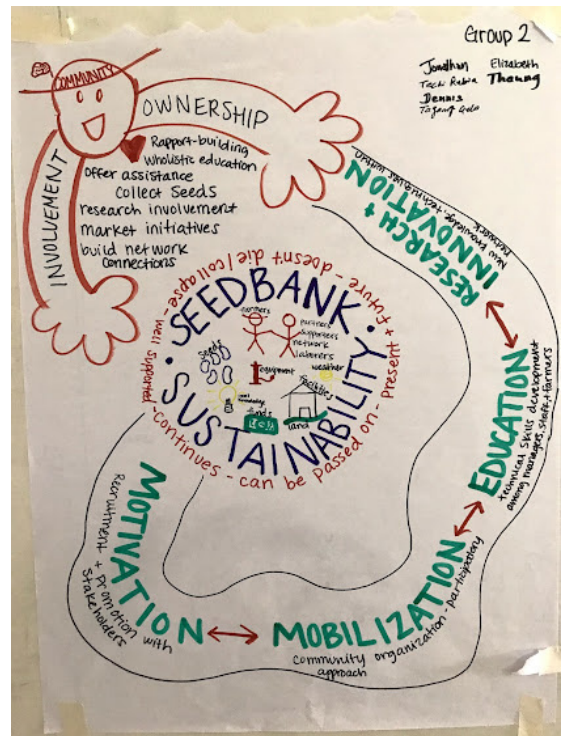 Group 2
Jonathan Elizabeth
Techi Rabia Theung
Dennis
COMMUNITY
OWNERSHIP
INVOLVEMENT
Rapport-building
Wholistic education
Offer assistance
Collect Seeds
research involvement
market initiatives
build network
connections
RESEARCH +
INNOVATION
New knowledge, techniques within
network
EDUCATION
technical skills development
among managers, staff, + farmers
MOBILIZATION
community organization - participatory
approach
MOTIVATION
Recruitment + Promotion with
Stakeholders
SEEDBANK
SUSTAINABILITY
well supported - continues - can be passed on - present + future - doesn't die/collapse
farmers
partners
supporters
network
laborers
seeds
equipment
weather
facilities
funds
land